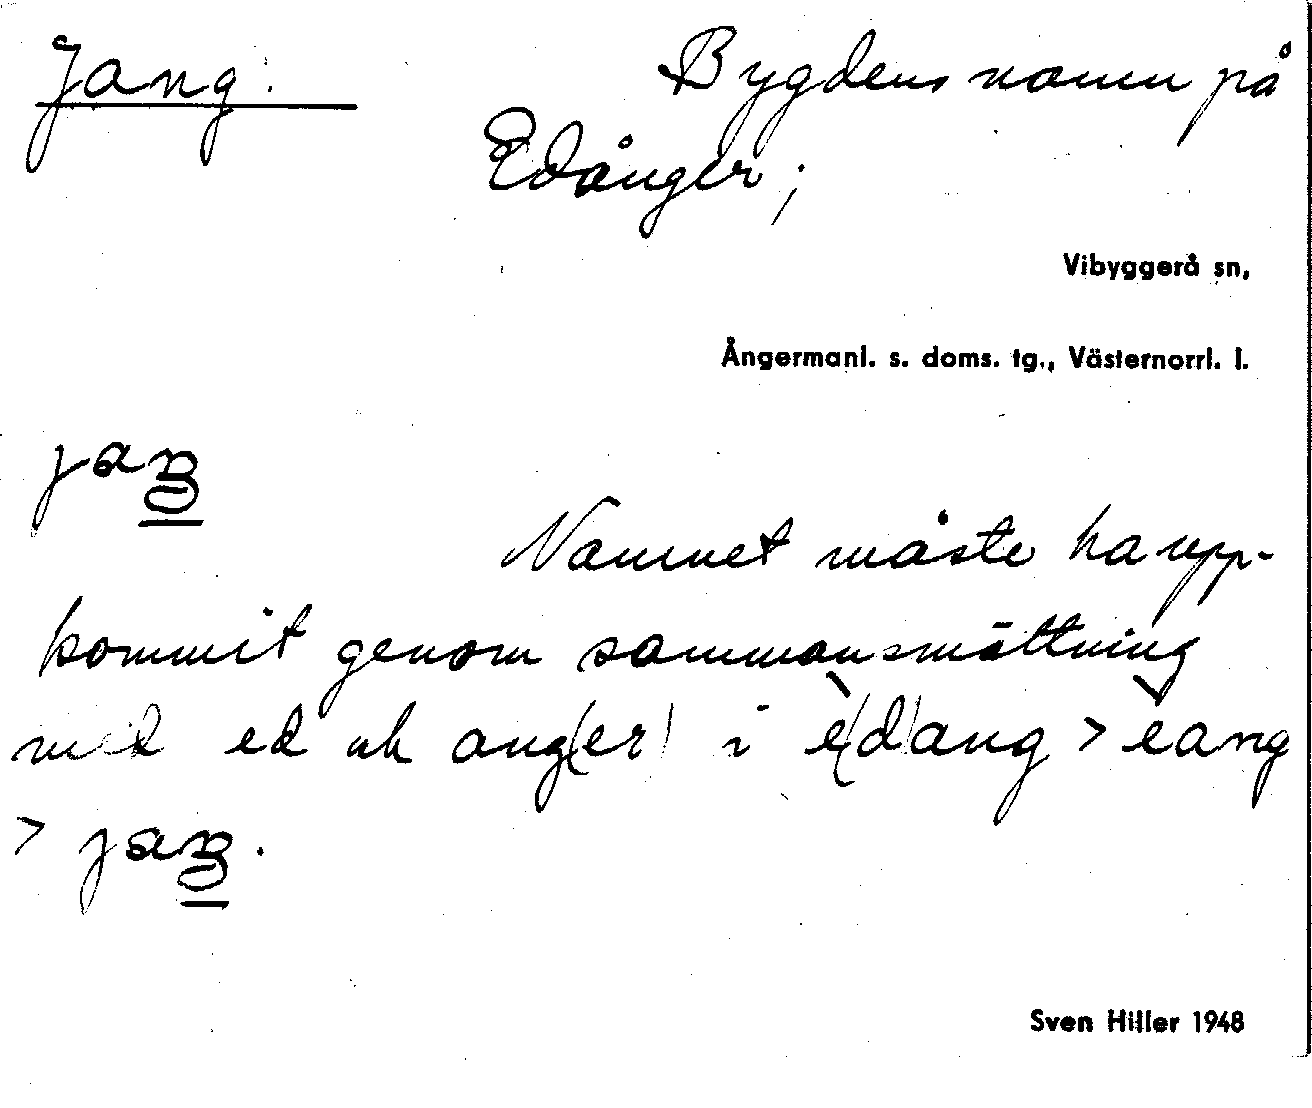 Jang. Bygdens namn på
Edånger;
Vibyggerå sn,
Ångermanl. s. doms. tg., Västernorrl. l.
jaŋ
Namnet måste ha upp-
kommit genom sammansmältning
med ed och ang(er) i è(d)ang > èang
> jaŋ.
Sven Hiller 1948